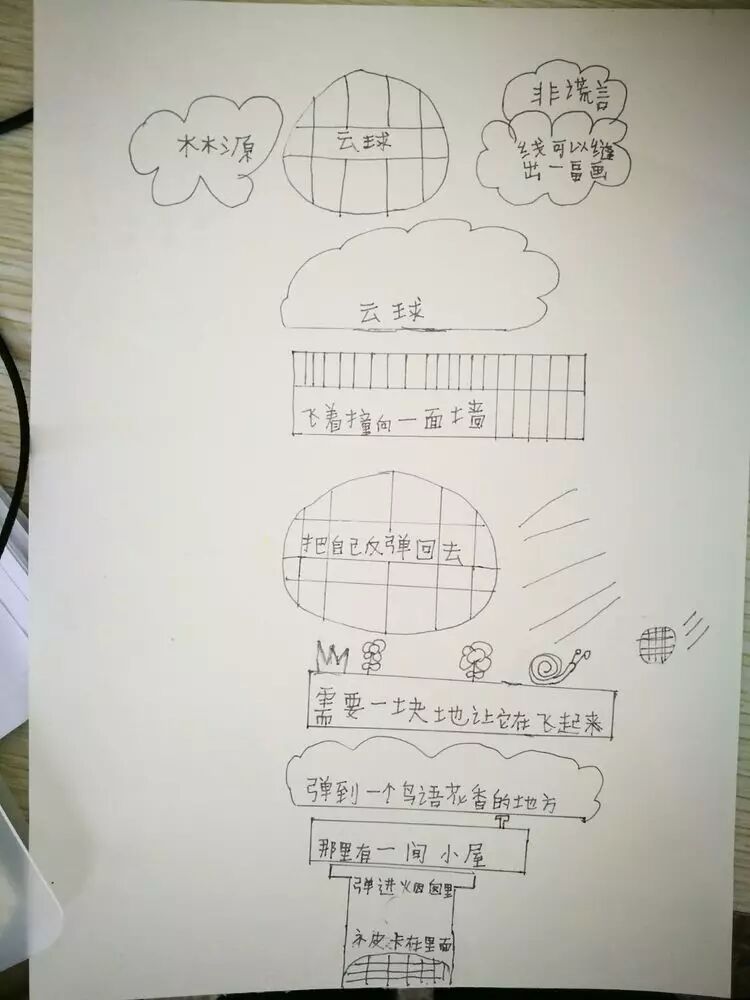 林林源
云球
非谎言
线可以缝
出一畐画
云球
飞着撞向一面墙
把自己反弹回去
需要一块地让它在飞起来
弹到一个鸟语花香的地方
那里有一间小屋
弹进烟囱里
皮卡在里面